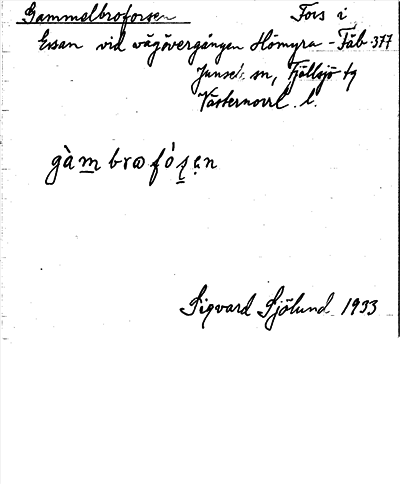 Gammelbroforsen Fors i
Essan vid vägövergången Hömyra - Fäb 377
Junsele sn, Fjällsjö tg
Västernorrl. l.
gàm brω fó ʂ ən
Sigvard Sjölund 1933